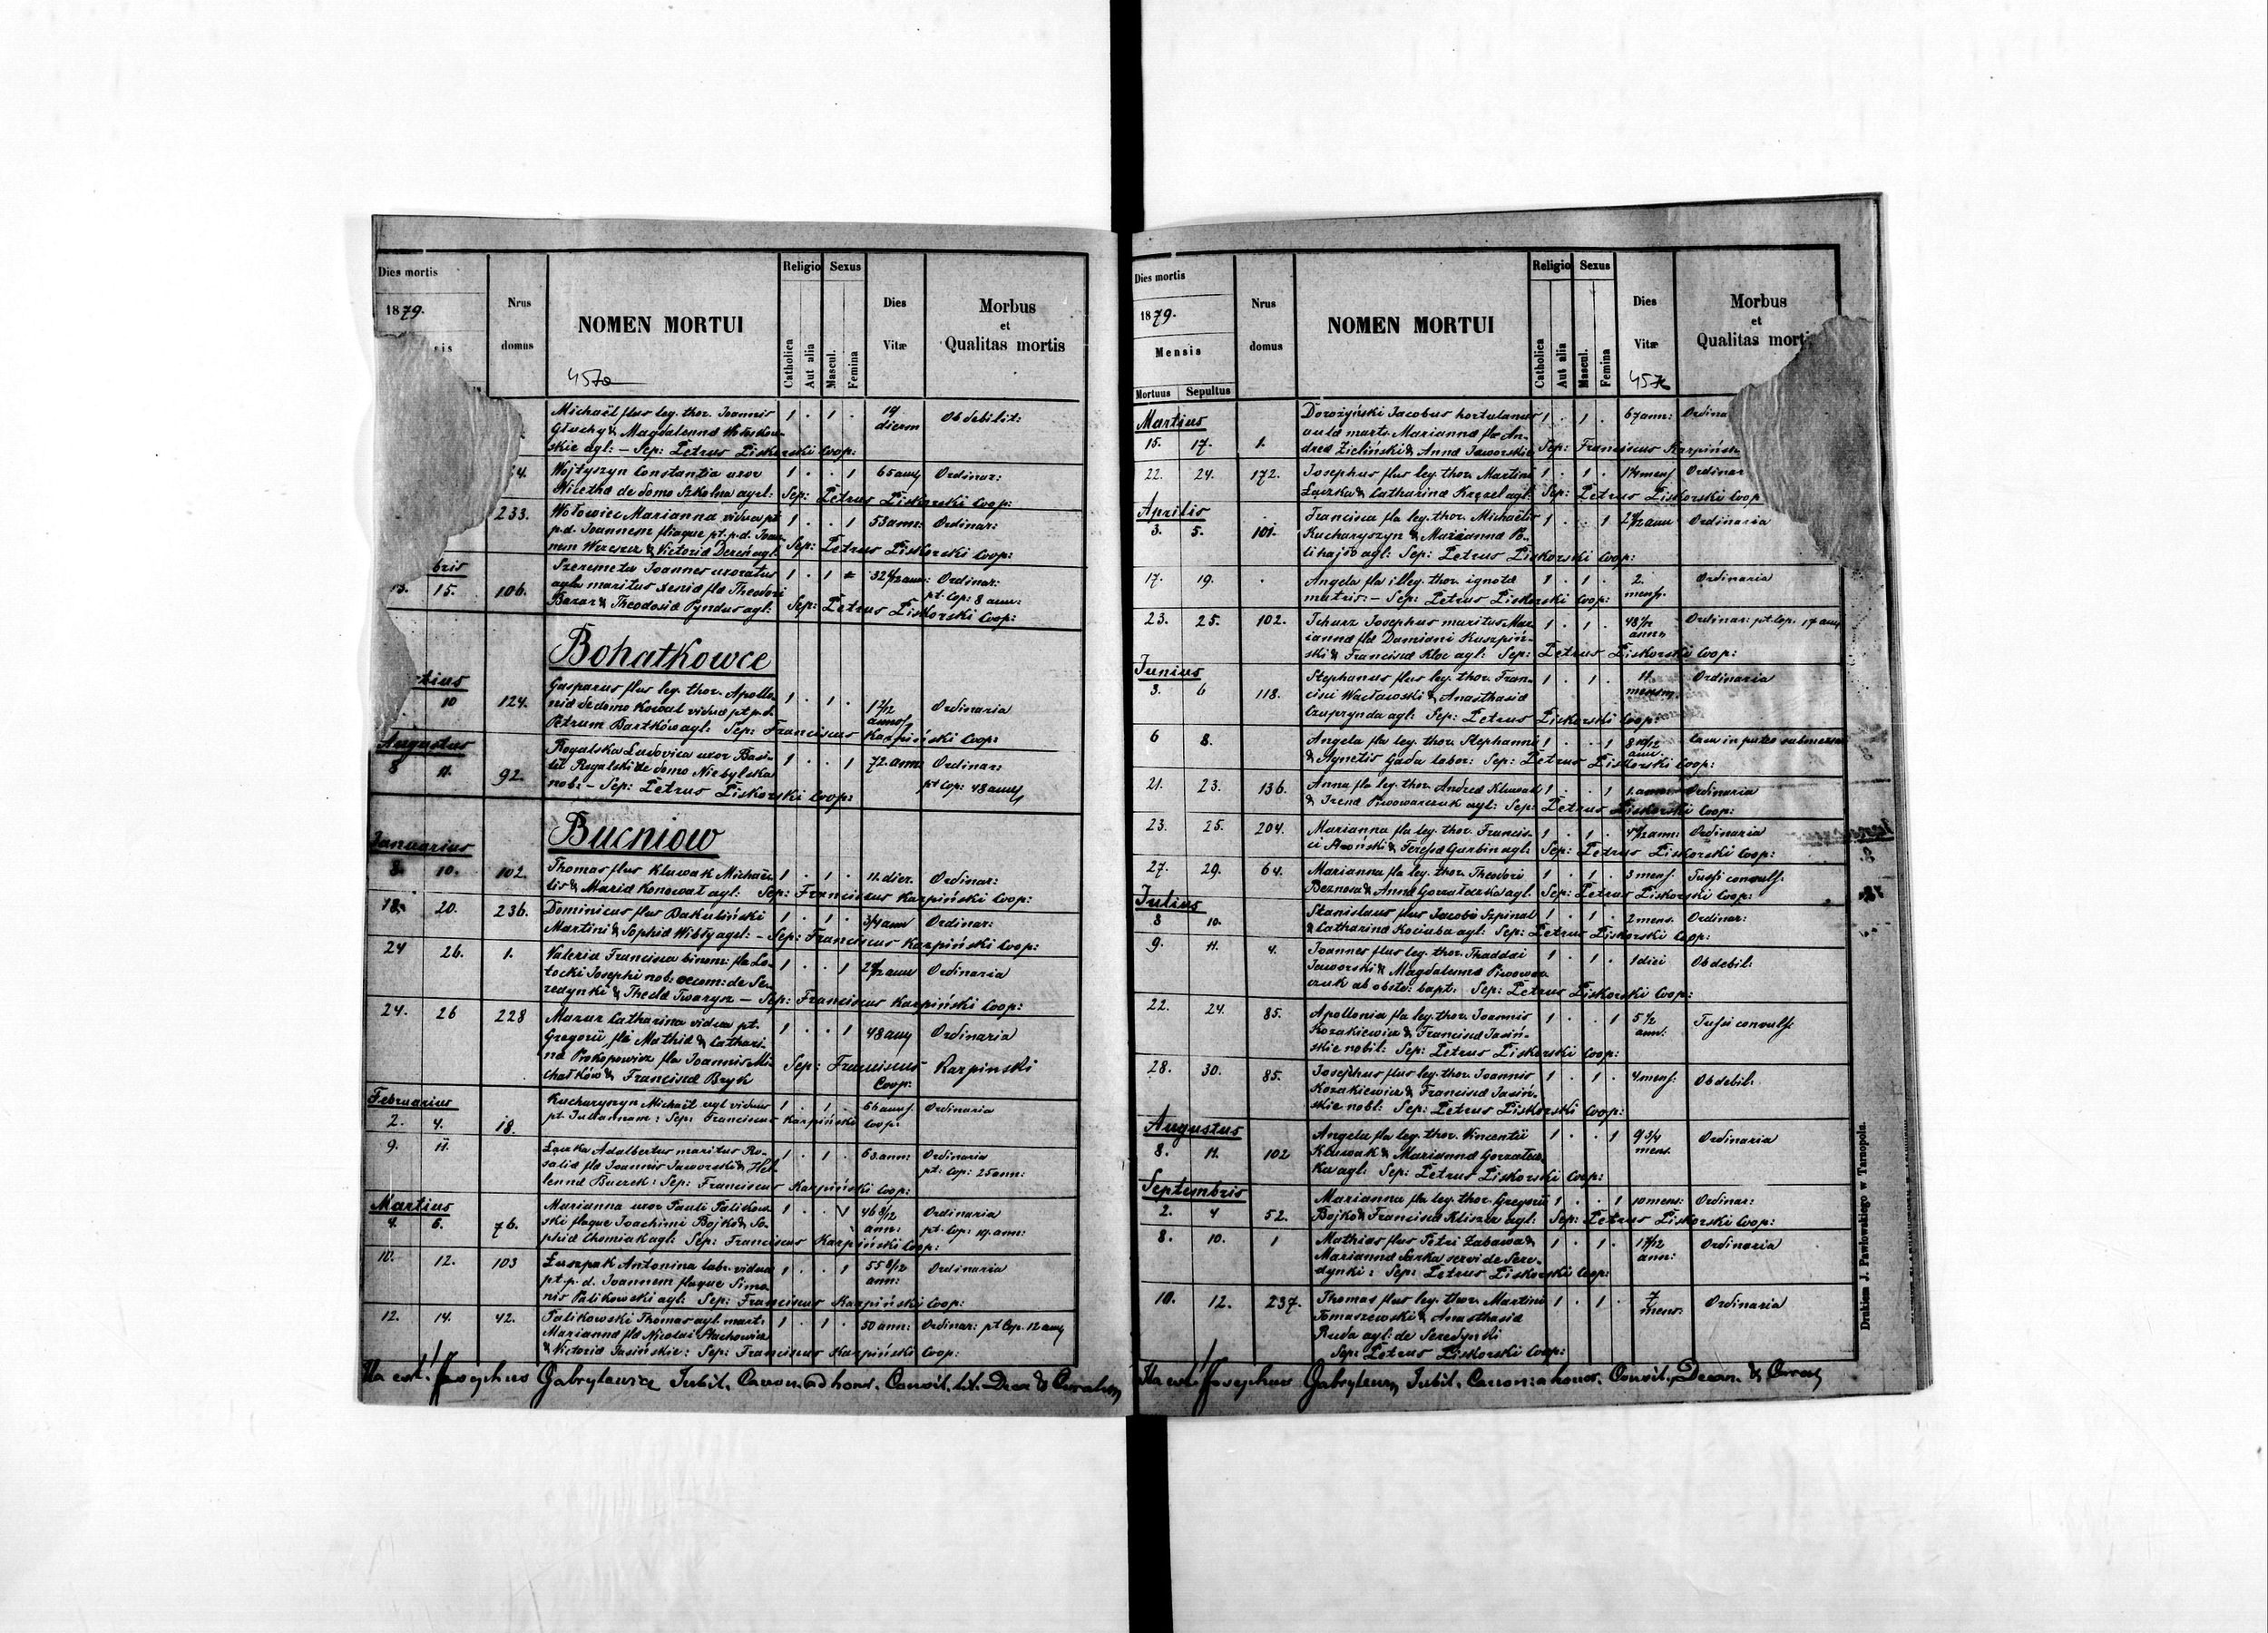 Dies mortis
1879.
Nrus
domus
NOMEN MORTUI
Religio
Catholica
Aut alia
Sexus
Mascul.
Femina
Dies
Vitæ
Morbus
et
Qualitas mortis
Michaël flus leg. thor. Joannis 1 . 1 . 19 Ob debilit:
Głuchy & Magdalenna dierm
skie agl: – Sep: Petrus Piskorski Coop:
34. Wojtyszyn Constantia uxor 1 . . 1 65 ann Ordinar:
Nicetha de domo Szkolna agl: Sep: Petrus Piskorski Coop:
233. Wołowiec Marianna vidua pt 1 . . 1 53 ann: Ordinar:
p.d. Joannem fliaque pt. p.d. Joan-
nem Werezer & Victoria Dereń agl. Sep: Petrus Piskorski Coop:
bris Szeremeta Joannes uxoratus 1 . 1 32 ann: Ordinar:
13. 15. 106. agla maritus Xenia fla Theodori pt. Cop: 8 ann:
Bazar & Theodosia Pyndus agl: Sep: Petrus Piskorski Coop:
Bohatkowce
tius
10 124. Gasparus flus leg. thor. Apollo- 1 . 1 . 1 2/12 Ordinaria
nia de domo Kowal vidua pt p.d. annos
Petrum Bartków agl: Sep: Franciscus Karpiński Coop:
Augustus
8 11. 92. Rogalska Ludovica uxor Basi- 1 . . 1 72. ann Ordinar:
lii Rogalski de domo Niebylska pt Cop: 48 ann
nob: – Sep: Petrus Piskorski Coop:
Bucniow
Januarius
8. 10. 102. Thomas flus Kluwak Michaë- 1 . 1 . 11. dier. Ordinar:
lis & Maria Konował agl: Sep: Franciscus Karpiński Coop:
18. 20. 236. Dominicus flus Bakuliński 1 . 1 . 3/4 ann Ordinar:
Martini & Sophia Wibły agl: – Sep: Franciscus Karpiński Coop:
24 26. 1. Valeria Francisca binom: fla Lo- 1 . . 1 ann Ordinaria
tocki Josephi nob: oecom: de Se-
redynki & Thecla Twarysz – Sep: Franciscus Karpiński Coop:
24. 26 228 Mazur Catharina vidua pt. 1 . . 1 48 ann Ordinaria
Gregorii, fla Mathia & Cathari-
na Prokopowicz fla Joannis Mi- Sep: Franciscus Karpinski
chałków & Francisca Bryk Coop:
Februarius
2. 4. 18. Kucharyszyn Michaël agl viduus 1 . 1 . 66 ann Ordinaria
pt. Juliannam: Sep: Franciscus Karpiński Coop:
9. 11. Łączka Adalbertus maritus Ro- 1 . 1 . 63. ann: Ordinaria
salia fla Joannis Jaworski & Hel- pt: Cop: 25 ann:
lenna Buczek: Sep: Franciscus Karpiński Coop:
Martius
4. 6. 76. Marianna uxor Pauli Palikow- 1 . . 46 8/12 Ordinaria
ski flaque Joachimi Bojko & So- ann: pt. Cop: 19. ann:
phia Chomiak agl: Sep: Franciscus Karpiński Coop:
10. 12. 103 Łuszpak Antonina labr. vidua 1 . . 1 55 8/12 Ordinaria
pt. p. d. Joannem flaque Simo- ann:
nis Palikowski agl: Sep: Franciscus Karpiński Coop:
12. 14. 42. Palikowski Thomas agl. marit: 1 . 1 . 50 ann: Ordinar: pt Cop. 12 ann
Marianna fla Nicolai Stachowicz
& Victoria Jasińskie: Sep: Franciscus Karpiński Coop:
Ita est. Josephus Gabrylewicz Jubil. Canon. ad hono. Consil. tit. Decan &
457a
Dies mortis
1879.
Mensis
Mortuus Sepultus
Nrus
domus
NOMEN MORTUI
Religio
Catholica
Aut alia
Sexus
Mascul.
Femina
Dies
Vitæ
Morbus
et
Qualitas mort
Martius
15. 17. 1. Dorożyński Jacobus hortulanus 1 . 1 . 67 ann: Ordina
aula marit. Marianna fla An-
drea Zieliński & Anna Jaworskie Sep: Franciscus Karpińsk
22. 24. 172. Josephus flus leg. thor. Martini 1 . 1 . mens Ordinar
Łączka & Catharina Krężel agl: Sep: Petrus Piskorski Coop
Aprilis
3. 5. 101. Francisca fla leg. thor. Michaëlis 1 . . 1 ann Ordinaria
Kucharyszyn & Marianna Po-
lihajło agl: Sep: Petrus Piskorski Coop:
17. 19. . Angela fla illeg. thor. ignota 1 . 1 . 2. Ordinaria
matris: – Sep: Petrus Piskorski Coop: mens.
23. 25. 102. Tchurz Josephus maritus Mar- 1 . 1 . 48 ann Ordinar: pt. Cop. 17 ann
ianna fla Damiani Kuszpiń-
ski & Francisca Kloc agl: Sep: Petrus Piskorski Coop:
Junius
3. 6 118. Stephanus flus leg. thor. Fran- 1 . 1 . 11. Ordinaria
cisci Wacławski & Anasthasia mensm.
Czuprynda agl: Sep: Petrus Piskorski Coop:
6 8. Angela fla leg. thor. Stephanni 1 . . 1 8 10/12 Casu in puteo submersa
& Agnetis Gada labor: Sep: Petrus Piskorski Coop: ann.
21. 23. 136. Anna fla leg. thor. Andrea Kluwak 1 . . 1 1. ann Ordinaria
& Irena Piwowarczuk agl: Sep: Petrus Piskorski Coop:
23. 25. 204. Marianna fla leg. thor. Francis- 1 . 1 . ann: Ordinaria
ci & Teressa Garbin agl: Sep: Petrus Piskorski Coop:
27. 29. 64. Marianna fla leg. thor. Theodori 1 . 1 . 3 mens. Tussi convuls.
Beznosa & Anna Gorzalezka agl. Sep: Petrus Piskorski Coop:
Julius
8 10. Stanislaus flus Jacobi Szpinal 1 . 1 . 2 mens. Ordinar:
& Catharina Kociuba agl: Sep: Petrus Piskorski Coop:
9. 11. 4. Joannes flus leg. thor. Thaddai 1 . 1 . 1 diei Ob debil:
Jaworski & Magdalenna Piwowar-
czuk ab obste: bapt. Sep: Petrus Piskorski Coop:
22. 24. 85. Apollonia fla leg. thor. Joannis 1 . . 1 5 1/2 Tussi convuls.
Kozakiewicz & Francisca Jasiń- ann:
skie nobil: Sep: Petrus Piskorski Coop:
28. 30. 85. Josephus flus leg. thor. Joannis 1 . 1 . 4 mens: Ob debil:
Kozakiewicz & Francisca Jasiń-
skie nobl: Sep: Petrus Piskorski Coop:
Augustus
8. 11. 102 Angela fla leg. thor. Vincentii 1 . . 1 9 3/4 Ordinaria
Kluwak & Marianna mens.
ka agl: Sep: Petrus Piskorski Coop:
Septembris
2. 4 52. Marianna fla leg. thor. Gregorii 1 . . 1 10 mens: Ordinar:
Bojko & Francisca Kliszcz agl: Sep: Petrus Piskorski Coop:
8. 10. 1 Mathias flus Petri Zabawa & 1 . 1 . Ordinaria
Marianna Sarka servi de Sere- ann:
dynki: Sep: Petrus Piskorski Coop:
10. 12. 237. Thomas flus leg. thor. Martini 1 . 1 . 7 Ordinaria
Tomaszewski & Anasthasia mens:
Ruda agl: de Seredynki
Sep: Petrus Piskorski Coop:
Ita est. Josephus Jubil. Canon. a honor. Consil., Decan. &
Drukiem J. Pawłowskiego w Tarnopolu.